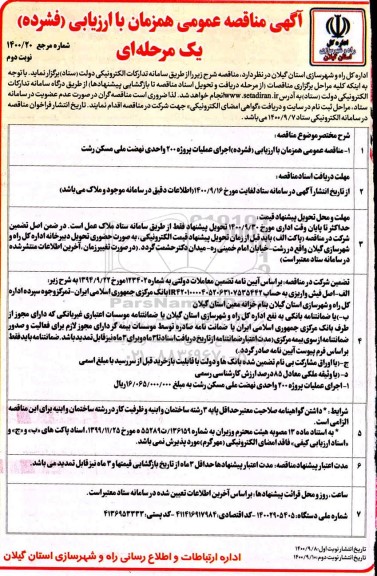 آگهی مناقصه عمومی همزمان با ارزیابی (فشرده)
یک مرحله‌ای
شماره مرجع ۱۴۰۰/۲۰
نوبت دوم
اداره کل راه و شهرسازی استان گیلان
اداره کل راه و شهرسازی استان گیلان در نظر دارد، مناقصه شرح زیر را از طریق سامانه تدارکات الکترونیکی دولت (ستاد) برگزار نماید. با توجه
به اینکه کلیه مراحل برگزاری مناقصات (از مرحله دریافت و تحویل اسناد مناقصه تا بازگشایی پیشنهادها) از طریق درگاه سامانه تدارکات
الکترونیکی دولت (ستاد) به آدرس www.setadiran.ir انجام خواهد شد. لذا ضروری است مناقصه گران در صورت عدم عضویت در سامانه
ستاد، مراحل ثبت نام در سایت و دریافت «گواهی امضای الکترونیکی» جهت شرکت در مناقصه اقدام نمایند. تاریخ انتشار فراخوان مناقصه
در سامانه الکترونیکی ستاد ۱۴۰۰/۹/۷ می باشد.
شرح مختصر موضوع مناقصه:
۱- مناقصه عمومی همزمان با ارزیابی (فشرده) اجرای عملیات پروژه ۲۰۰ واحدی نهضت ملی مسکن رشت
۱
مهلت دریافت اسناد مناقصه:
از تاریخ انتشار آگهی در سامانه ستاد لغایت مورخ ۱۴۰۰/۹/۱۶ (اطلاعات دقیق در سامانه موجود و ملاک می باشد)
۲
مهلت و محل تحویل پیشنهاد قیمت:
حداکثر تا پایان وقت اداری مورخ ۱۴۰۰/۹/۳۰ تحویل پیشنهاد فقط از طریق سامانه ستاد ملاک عمل است. در ضمن اصل تضمین
شرکت در مناقصه (پاکت الف) باید قبل از زمان تحویل پیشنهاد قیمت الکترونیکی، به صورت حضوری تحویل دبیرخانه اداره کل راه و
شهرسازی گیلان واقع در رشت- خیابان امام خمینی ره- میدان دکتر حشمت گردد. (در صورت تغییر زمان، آخرین اطلاعات منتشر شده
در سامانه ستاد معتبر است)
۳
تضمین شرکت در مناقصه: براساس آیین نامه تضمین معاملات دولتی به شماره ۱۲۳۴۰۲ مورخ ۱۳۹۴/۹/۲۲ به شرح زیر:
الف- اصل فیش واریزی به حساب بانک مرکزی جمهوری اسلامی ایران- تمرکز وجوه سپرده اداره
کل راه و شهرسازی استان گیلان بنام خزانه معین استان گیلان
ب- یا ضمانتنامه بانکی به نفع اداره کل راه و شهرسازی استان گیلان یا ضمانتنامه موسسات اعتباری غیربانکی که دارای مجوز از
طرف بانک مرکزی جمهوری اسلامی ایران یا ضمانت نامه صادره توسط موسسات بیمه گر دارای مجوز لازم برای فعالیت و صدور
ضمانتنامه از سوی بیمه مرکزی (مدت اعتبار ضمانتنامه از تاریخ دریافت اسناد تا ۳ ماه و برای ۳ ماه نیز قابل تمدید باشد. ضمانتنامه باید فقط
براساس فرم پیوست آیین نامه صادر گردد.)
ج- یا اوراق مشارکت بی نام تضمین شده بانک ها و دولت با قابلیت بازخرید قبل از سررسید با مبلغ اسمی
د- یا وثیقه ملکی معادل ۸۵ درصد ارزش کارشناسی رسمی
۱- اجرای عملیات پروژه ۲۰۰ واحدی نهضت ملی مسکن رشت به مبلغ ۱۶/۰۶۵/۰۰۰/۰۰۰ ریال
۴
شرایط: * داشتن گواهینامه صلاحیت معتبر حداقل پایه ۳ رشته ساختمان و ابنیه و ظرفیت کار در رشته ساختمان و ابنیه برای این مناقصه
الزامی است.
* به استناد ماده ۱۳ مصوبه هیئت محترم وزیران به شماره ۱۳۶۱۵۹/ت۵۵۲۸۹ه مورخ ۱۳۹۹/۱۱/۲۵، اسناد پاکت های «ب» و «ج» و
«اسناد ارزیابی کیفی»، فاقد امضای الکترونیکی (مهر گرم) مورد پذیرش نمی باشد.
۵
مدت اعتبار پیشنهاد مناقصه: مدت اعتبار پیشنهادها حداقل ۳ ماه از تاریخ بازگشایی قیمتها و ۳ ماه نیز قابل تمدید می باشد.
۶
ساعت، روز و محل قرائت پیشنهادها: براساس آخرین اطلاعات تعیین شده در سامانه ستاد معتبر است.
شماره ملی دستگاه: ۱۴۰۰۲۹۰۵۴۰۵ - کد اقتصادی: ۴۱۱۴۱۶۹۱۷۹۸۴ - کدپستی: ۴۱۳۶۹۵۳۳۳۳
۷
تاریخ انتشار نوبت اول: ۱۴۰۰/۹/۸
تاریخ انتشار نوبت دوم: ۱۴۰۰/۹/۱۰
اداره ارتباطات و اطلاع رسانی راه و شهرسازی استان گیلان